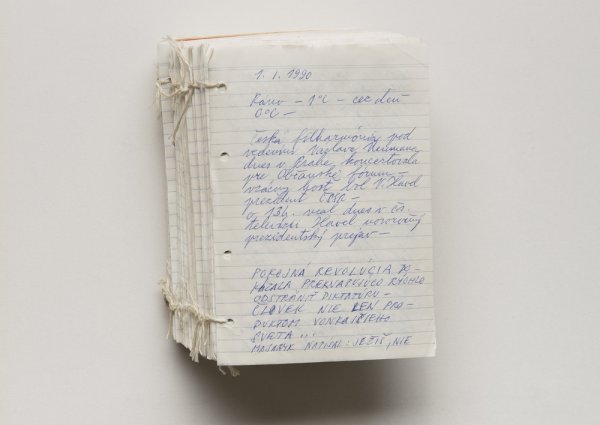 1. I. 1990
Ráno – 1°C – cez deň
0°C –
Česká filharmónia pod
vedením Václava Neumana
dnes v Prahe koncertovala
pre Občianske fórum –
vzácny hosť bol V. Havel
prezident ČSSR –
o 13h. mal dnes v čs.
televízii Havel novoročný
prezidentský prejav –
POKOJNÁ REVOLÚCIA DO-
KÁZALA PREKVAPUJÚCO RÝCHLO
ODSTRÁNIŤ DIKTATÚRU –
ČLOVEK NIE LEN PRO-
DUKTOM VONKAJŠIEHO
SVETA ...
MASARYK NAPÍSAL: JEŽIŠ, NIE